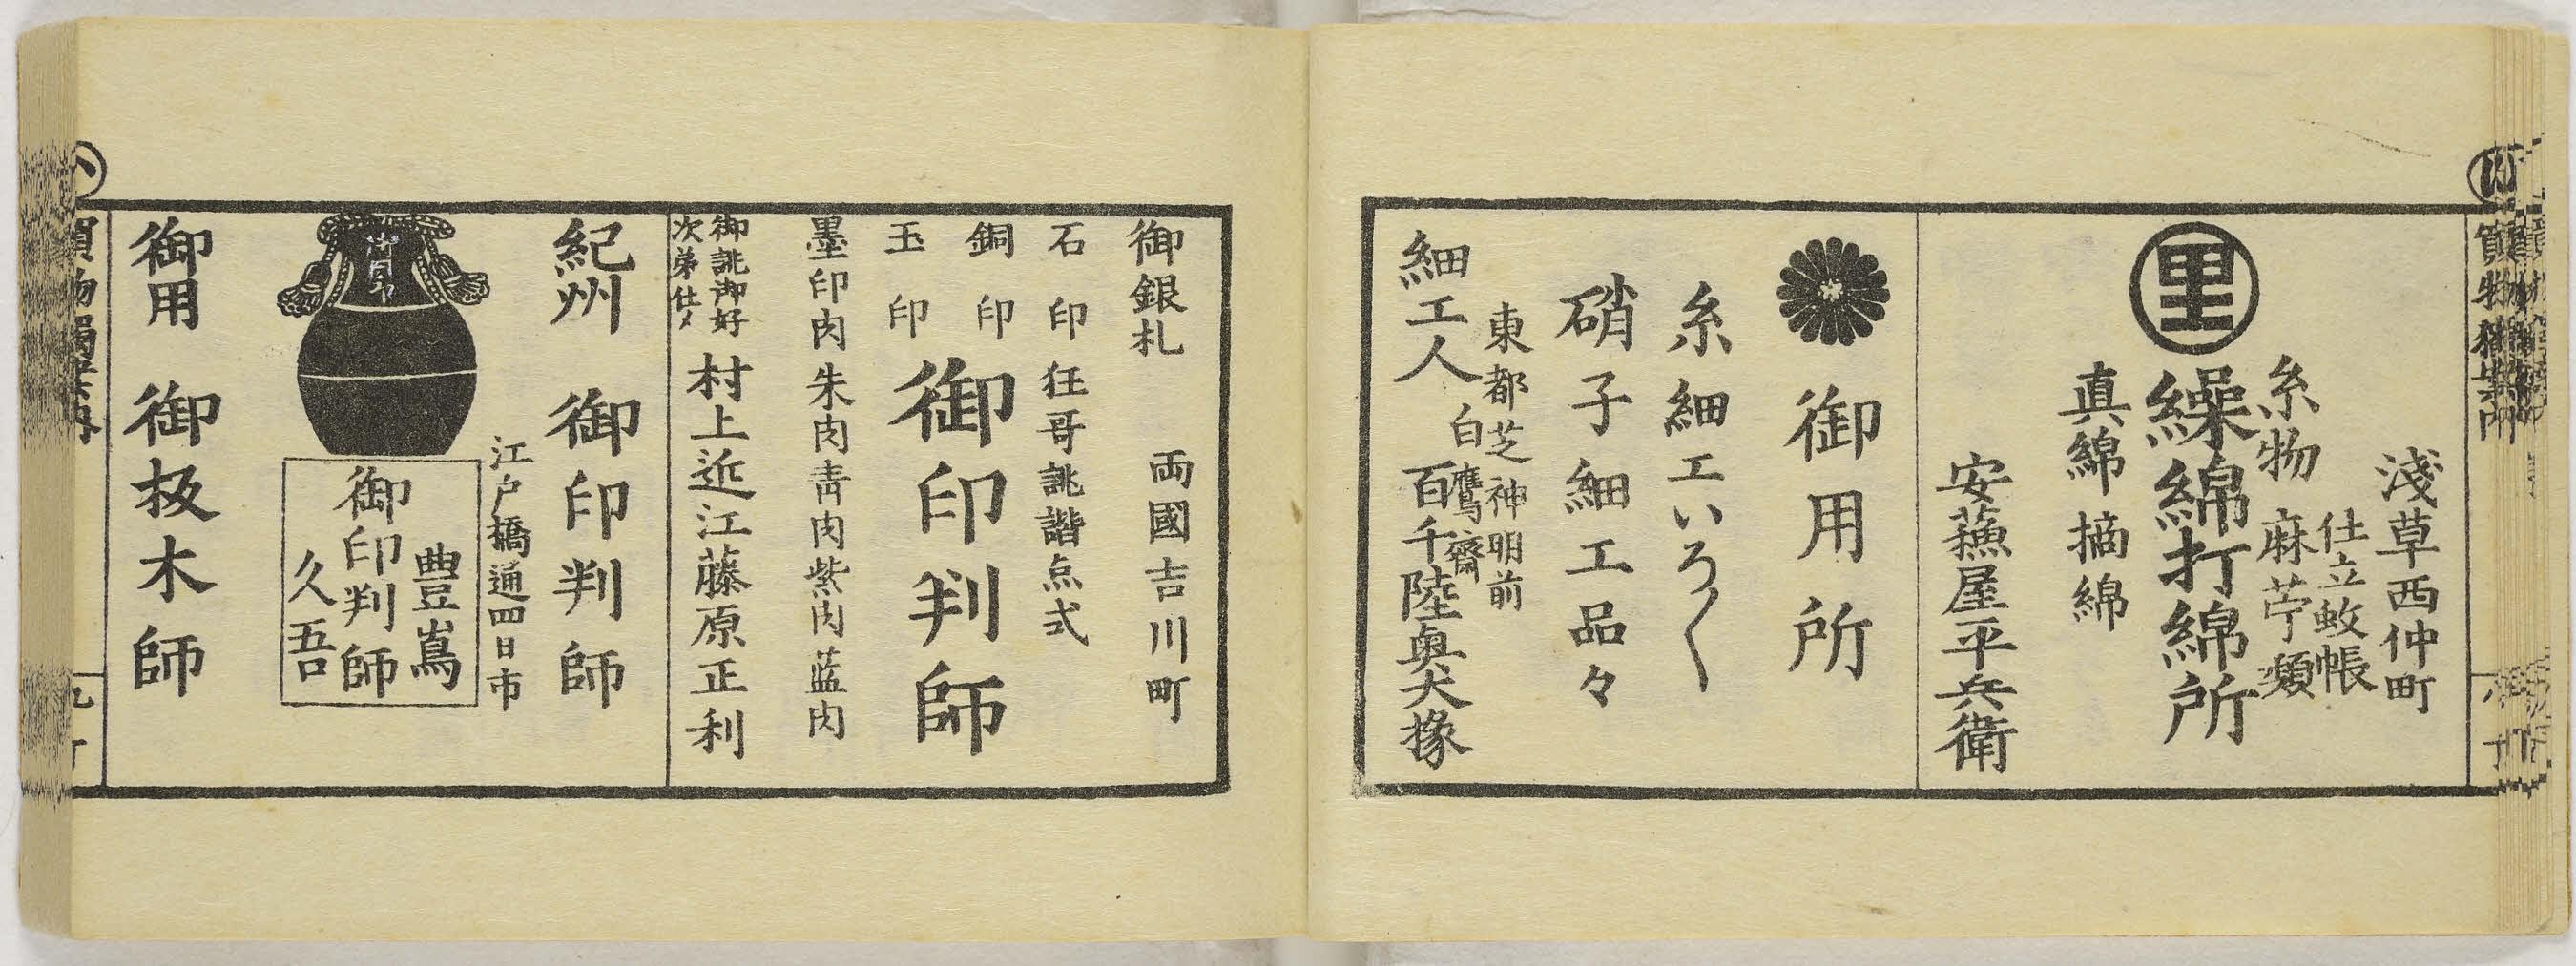 淺草西仲町
仕立蚊帳
糸物 麻苧類
里
繰綿打綿所
真綿 摘綿
安蘓屋平兵衛
御用所
糸細工いろ〱
硝子細工品々
東都芝神明前
白鷹齋
細工人 百千陸奥大掾
御銀札 両國吉川町
石印 狂哥誹諧点式
銅印
玉印
御印判師
墨印肉朱肉青肉紫肉藍肉
御誂御好
次弟仕〆
村上近江藤原正利
紀州 御印判師
江戸橋通四日市
豊嶌
御印判師
久吾
御用 御板木師